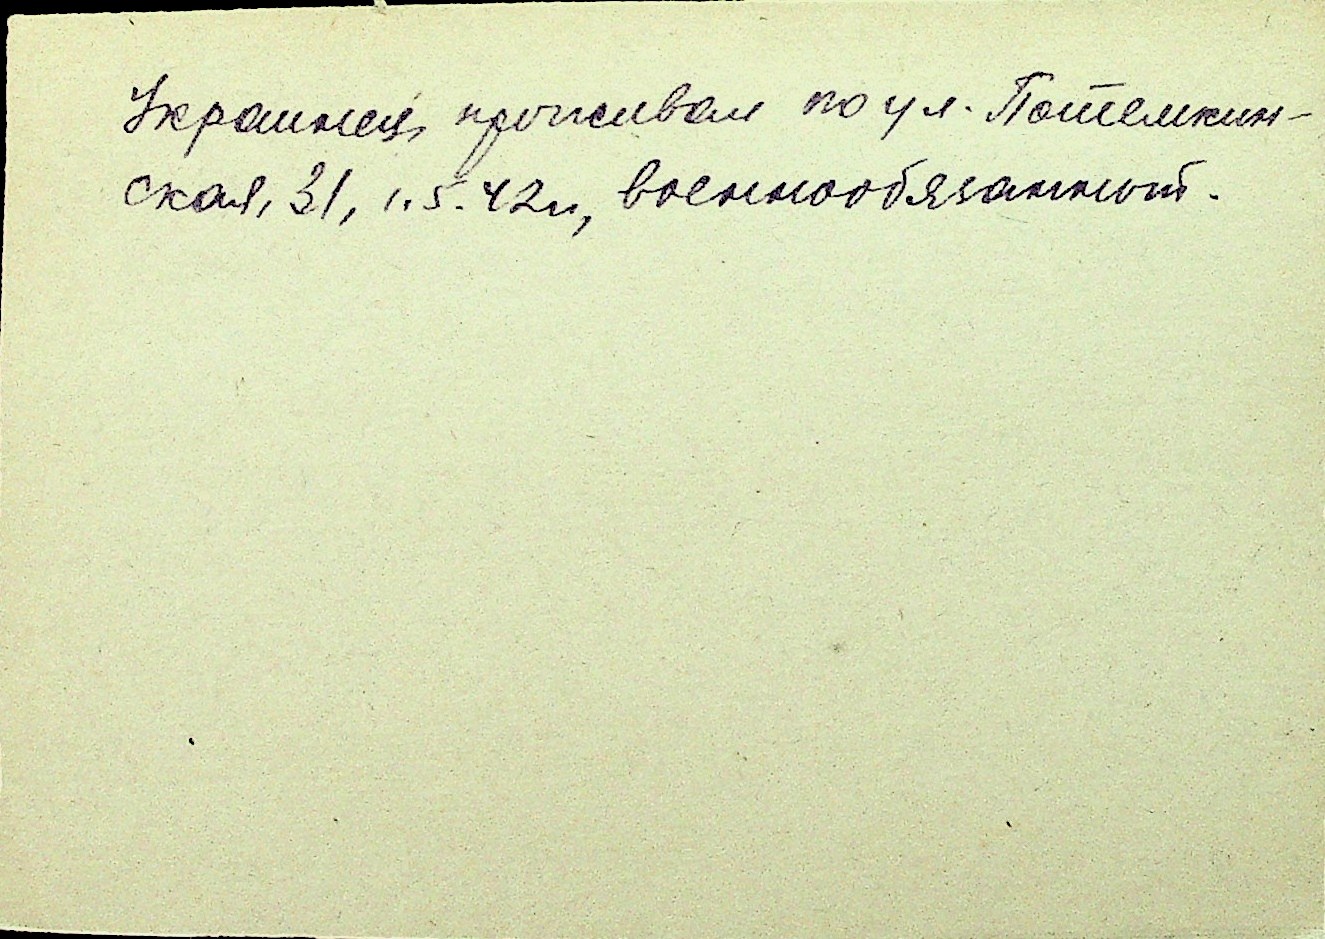 Украинец, проживал по ул. Потемкин-
ская, 31, 1.5.42г., военнообязанный.